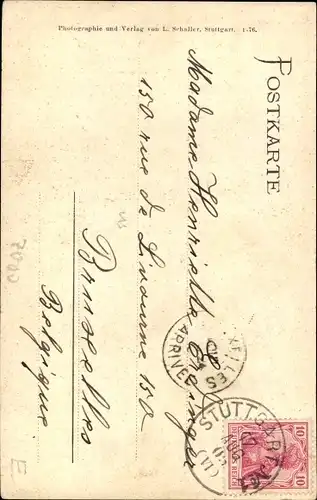 Photographie und Verlag von L. Schaller, Stuttgart. 1-76.
POSTKARTE
Madame Henriette Singer
150 rue de Livourne 150
Bruxelles
Belgique
STUTTGART
BRUXELLES
ARRIVEE
10 10
DEUTSCHES REICH
E